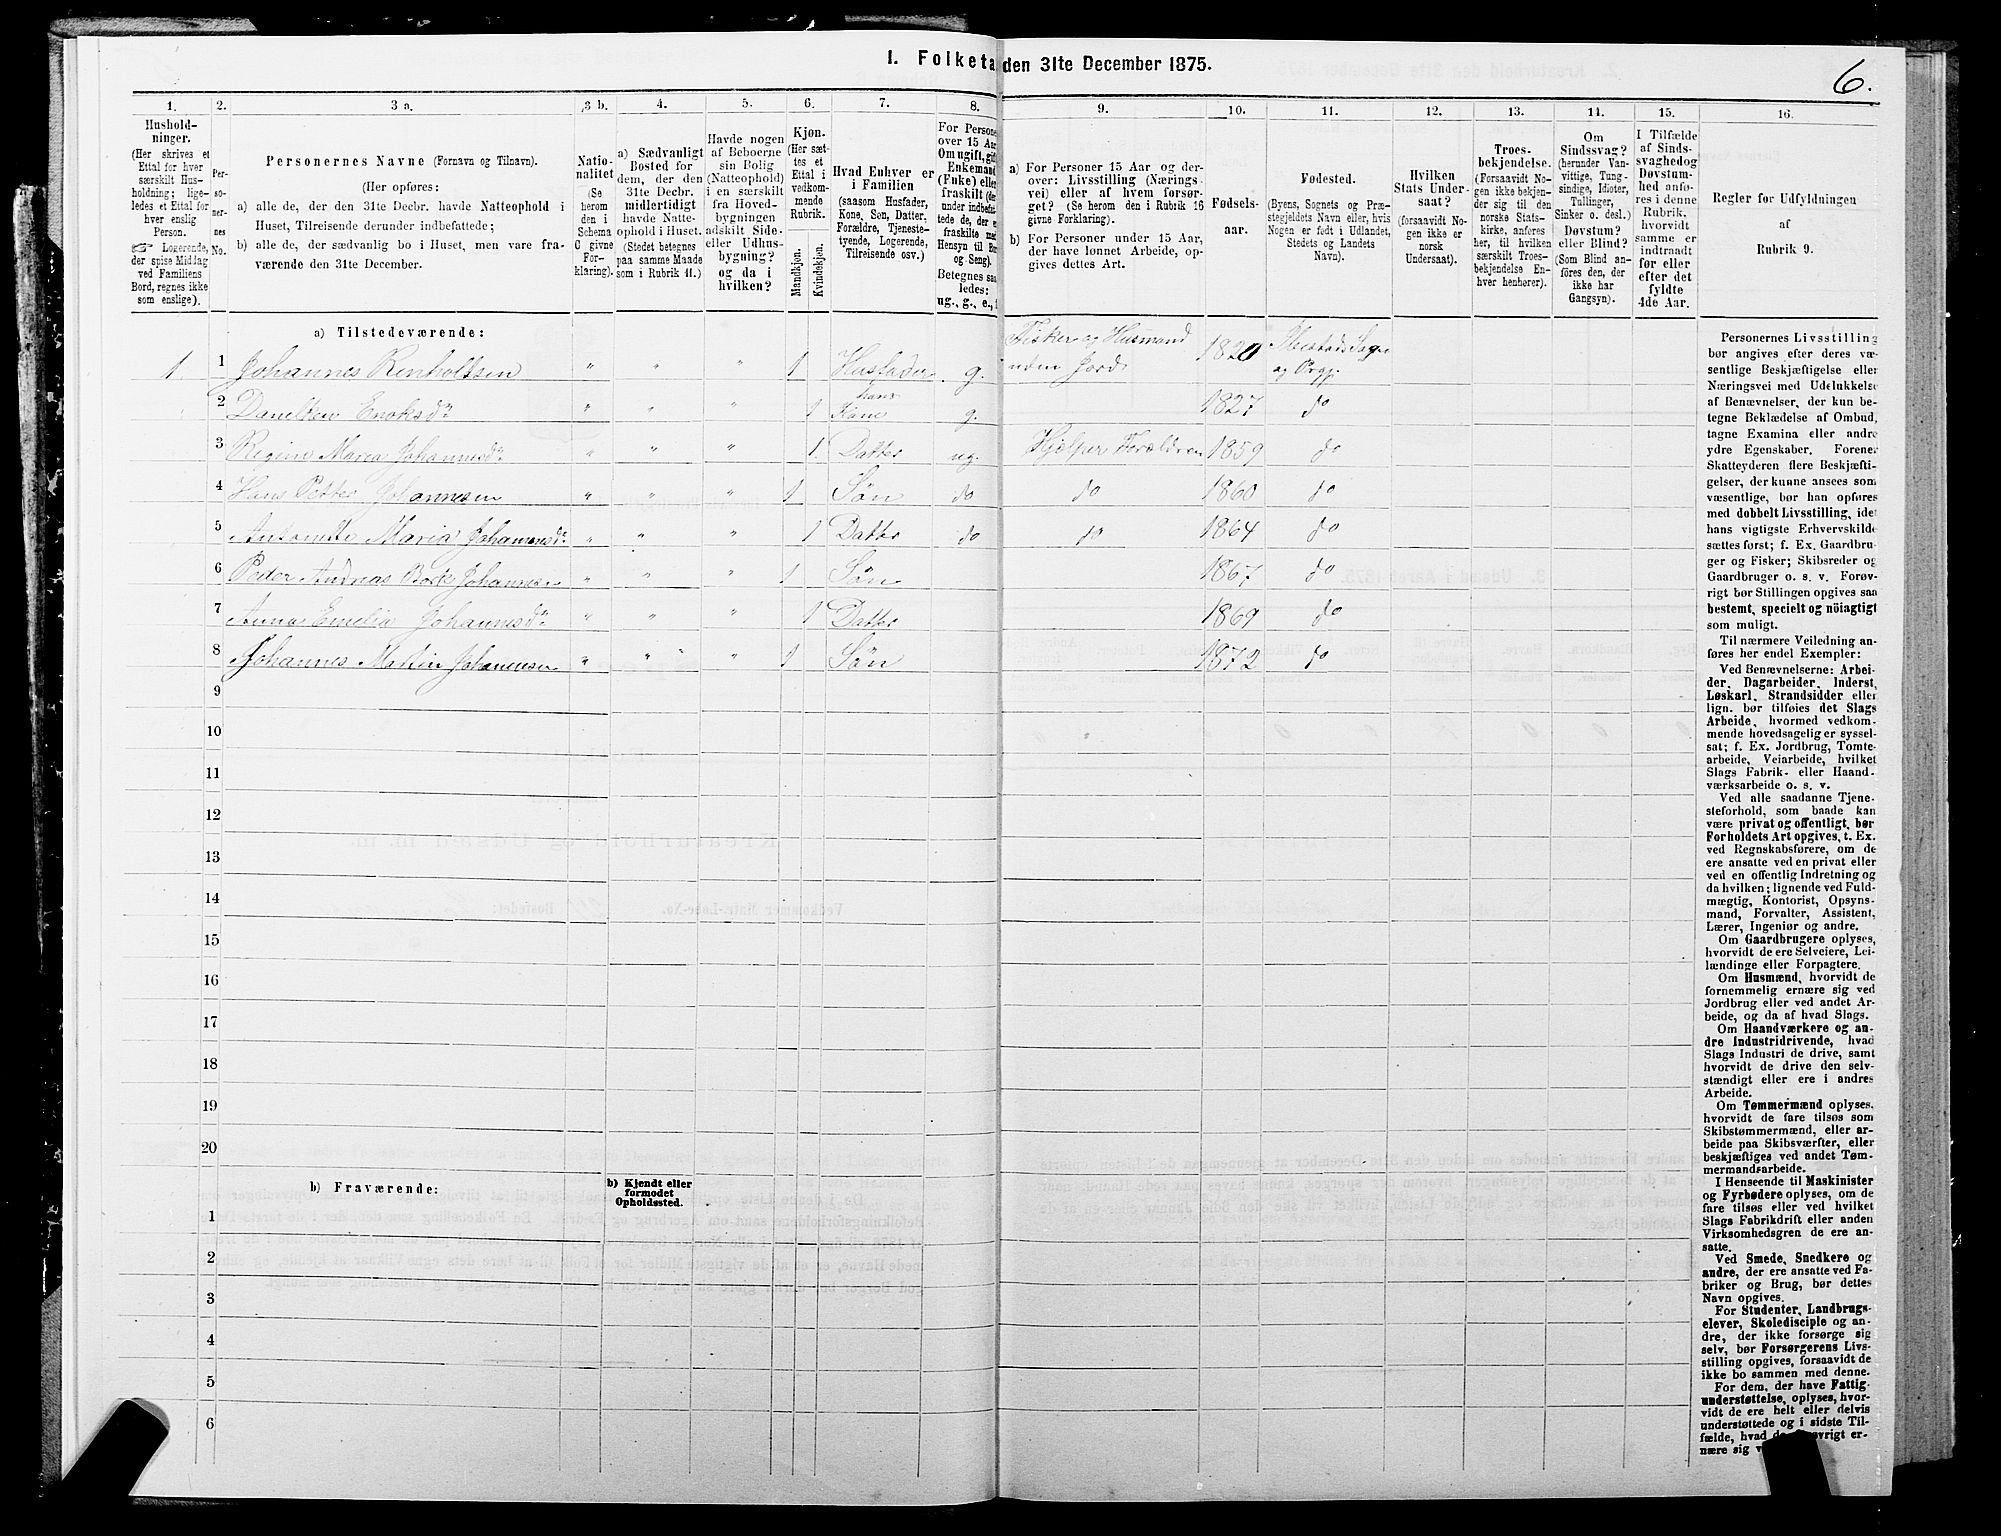 I. Folketa den 31te December 1875.
6.
1. 2. 3 a. 3 b. 4. 5. 6. 7. 8. 9. 10. 11. 12. 13. 14. 15. 16.
Hushold-
ninger.
(Her skrives et
Ettal for hver
særskilt Hus-
holdning; lige-
ledes et Ettal for
hver enslig
Person.
Logerende,
der spise Middag
ved Familiens
Bord, regnes ikke
som enslige).
Per-
so-
ner-
nes
No.
Personernes Navne (Fornavn og Tilnavn).
(Her opføres:
a) alle de, der den 31te Decbr. havde Natteophold i
Huset, Tilreisende derunder indbefattede;
b) alle de, der sædvanlig bo i Huset, men vare fra-
værende den 31te December.
Natio-
nalitet
(Se
herom
den i
Schema
C givne
For-
klaring).
a) Sædvanligt
Bosted for
dem, der den
31te Decbr.
midlertidigt
havde Natte-
ophold i Huset.
(Stedet betegnes
paa samme Maade
som i Rubrik 11.)
Havde nogen
af Beboerne
sin Bolig
(Natteophold)
i en særskilt
fra Hoved-
bygningen
adskilt Side-
eller Udhus-
bygning?
og da i
hvilken?
Kjøn.
(Her sæt-
tes et
Ettal i
vedkom-
mende
Rubrik.
Mandkjøn.
Kvindekjøn.
Hvad Enhver er
i Familien
(saasom Husfader,
Kone, Søn, Datter,
Forældre, Tjeneste-
tyende, Logerende,
Tilreisende osv.)
For Persone
over 15 Aar
Om ugift, gif
Enkemand
(Enke) elle
fraskilt (de
under indbefat-
tede de, der e
fraskilte me
Hensyn til Bo
og Seng).
Betegnes saa
ledes:
ug., g., e.,
a) For Personer 15 Aar og der-
over: Livsstilling (Nærings-
vei) eller af hvem forsør-
get? (Se herom den i Rubrik 16
givne Forklaring).
b) For Personer under 15 Aar,
der have lønnet Arbeide, op-
gives dettes Art.
Fødsels-
aar.
Fødested.
(Byens, Sognets og Præ-
stegjeldets Navn eller, hvis
Nogen er født i Udlandet,
Stedets og Landets
Navn).
Hvilken
Stats Under-
saat?
(forsaavidt No-
gen ikke er
norsk
Undersaat).
Troes-
bekjendelse.
(Forsaavidt No-
gen ikke bekjen-
der sig til den
norske Stats-
kirke, anføres
her, til hvilken
særskilt Troes-
bekjendelse En-
hver henhører).
Om
Sindssvag?
(herunder Van-
vittige, Tung-
sindige, Idioter,
Tullinger,
Sinker o. desl.)
Døvstum?
eller Blind?
(Som Blind an-
føres den, der
ikke har
Gangsyn).
I Tilfælde
af Sinds-
svaghed og
Døvstum-
hed anfø-
res i denne
Rubrik,
hvorvidt
samme er
indtraadt
før eller
efter det
fyldte
4de Aar.
Regler for Udfyldningen
af
Rubrik 9.
a) Tilstedeværende:
1 1 Johannes Renholtsen " " " 1 Husfader g. Fisker og Husmand uden Jord 1820 Ibestads Sogn og Prgj.
2 Danelken Enoksd. " " " 1 hans Kone g. 1827 do
3 Regine Maria Johannesd. " " " 1 Datter ug. Hjælper Forældren 1859 do
4 Hans Petter Johannesen " " " 1 Søn do do 1860 do
5 Antonette Maria Johannesd. " " " 1 Datter do do 1864 do
6 Peder Andreas Johannesen " " " 1 Søn 1867 do
7 Anna Emelia Johannesd. " " " 1 Datter 1869 do
8 Johannes Martin Johannesen " " " 1 Søn 1872 do
9
10
11
12
13
14
15
16
17
18
19
20
b) Fraværende:
b) Kjendt eller
formodet
Opholdssted.
1
2
3
4
5
6
Personernes Livsstilling
bør angives efter deres væ-
sentlige Beskjæftigelse eller
Næringsvei med Udelukkelse
af Benævnelser, der kun be-
tegne Beklædelse af Ombud,
tagne Examina eller andre
ydre Egenskaber. Forener
Skatteyderen flere Beskjæfti-
gelser, der kunne ansees som
væsentlige, bør han opføres
med dobbelt Livsstilling, idet
hans vigtigste Erhvervskilde
sættes først; f. Ex. Gaardbru-
ger og Fisker; Skibsreder og
Gaardbruger o. s. v. Forøv-
rigt bør Stillingen opgives saa
bestemt, specielt og nöiagtigt
som muligt.
Til nærmere Veiledning an-
føres her endel Exempler:
Ved Benævnelserne: Arbei-
der, Dagarbeider, Inderst,
Løskarl, Strandsidder eller
lign. bør tilføies det Slags
Arbeide, hvormed vedkom-
mende hovedsagelig er syssel-
sat; f. Ex. Jordbrug, Tomte-
arbeide, Veiarbeide, hvilket
Slags Fabrik- eller Haand-
værksarbeide o. s. v.
Ved alle saadanne Tjene-
steforhold, som baade kan
være privat og offentligt, bør
Forholdets Art opgives, t. Ex.
ved Regnskabsførere, om de
ere ansatte ved en privat eller
ved en offentlig Indretning og
da hvilken; lignende ved Fuld-
mægtig, Kontorist, Opsyns-
mand, Forvalter, Assistent,
Lærer, Ingeniør og andre.
Om Gaardbrugere oplyses,
hvorvidt de ere Selveiere, Lei-
lændinge eller Forpagtere.
Om Husmænd, hvorvidt de
fornemmelig ernære sig ved
Jordbrug eller ved andet Ar-
beide, og da af hvad Slags.
Om Haandværkere og an-
dre Industridrivende, hvad
Slags Industri de drive, samt
hvorvidt de drive den selv-
stændigt eller ere i andres
Arbeide.
Om Tømmermænd oplyses,
hvorvidt de fare tilsøs som
Skibstømmermænd, eller ar-
beide paa Skibsværfter, eller
beskjæftiges ved andet Tøm-
mermandsarbeide.
I Henseende til Maskinister
og Fyrbødere oplyses, om de
fare tilsøs eller ved hvilket
Slags Fabrikdrift eller anden
Virksomhedsgren de ere an-
satte.
Ved Smede, Snedkere og
andre, der ere ansatte ved Fa-
briker og Brug, bør dettes
Navn opgives.
For Studenter, Landbrugs-
elever, Skoledisciple og an-
dre, der ikke forsørge sig
selv, bør Forsørgerens Livs-
stilling opgives, forsaavidt de
ikke bo sammen med denne.
For dem, der have Fattig-
understøttelse, oplyses, hvor-
vidt de ere helt eller delvis
understøttede og i sidste Til-
fælde, hvad de øvrigt er-
nære sig